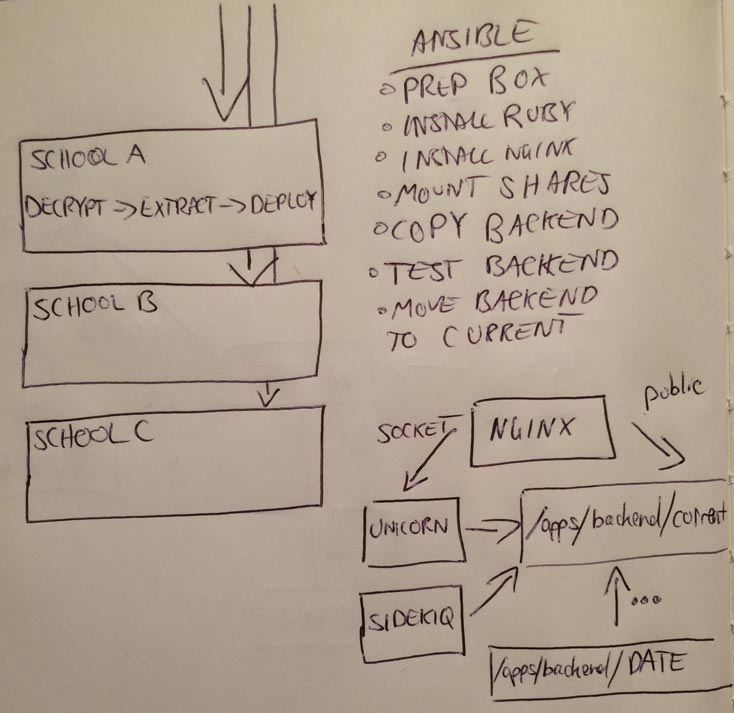 SCHOOL A
DECRYPT → EXTRACT → DEPLOY
SCHOOL B
SCHOOL C
ANSIBLE
◦ PREP BOX
◦ INSTALL RUBY
◦ INSTALL NGINX
◦ MOUNT SHARES
◦ COPY BACKEND
◦ TEST BACKEND
◦ MOVE BACKEND
TO CURRENT
public
SOCKET
NGINX
UNICORN
/apps/backend/current
SIDEKIQ
...
/apps/backend/DATE